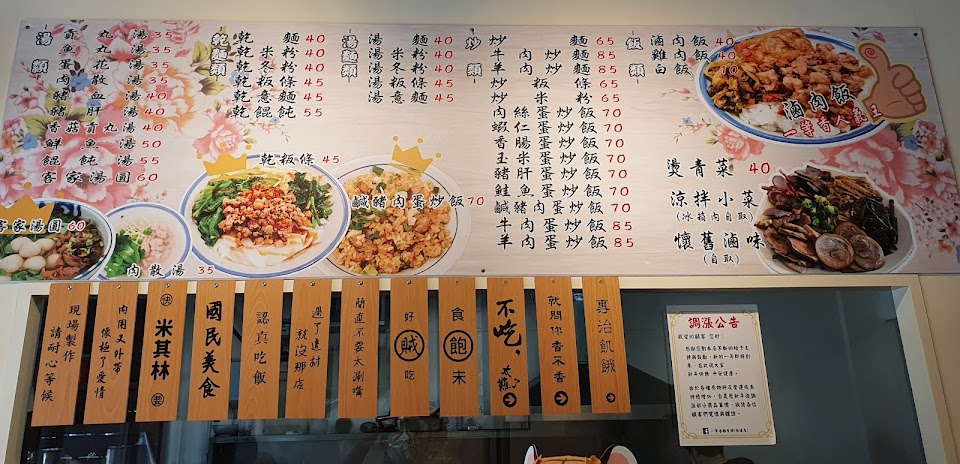 湯類
貢丸湯 35
魚丸湯 35
蛋花湯 35
肉散湯 35
豬血湯 40
豬肝湯 40
香菇貢丸湯 40
鮮魚湯 50
餛飩湯 55
客家湯圓 60
乾麵類
乾麵 40
乾米粉 40
乾冬粉 40
乾粄條 45
乾意麵 45
乾餛飩 55
湯麵類
湯麵 40
湯米粉 40
湯冬粉 40
湯粄條 45
湯意麵 45
炒類
炒麵 65
牛肉炒麵 85
羊肉炒麵 85
炒粄條 65
炒米粉 65
肉絲蛋炒飯 70
蝦仁蛋炒飯 70
香腸蛋炒飯 70
玉米蛋炒飯 70
豬肝蛋炒飯 70
鮭魚蛋炒飯 70
鹹豬肉蛋炒飯 70
牛肉蛋炒飯 85
羊肉蛋炒飯 85
飯類
滷肉飯 40
雞肉飯 40
白飯 10
滷肉飯
燙青菜 40
涼拌小菜
(冰箱內自取)
懷舊滷味
(自取)
客家湯圓 60
肉散湯 35
乾粄條 45
鹹豬肉蛋炒飯 70
現場製作
請耐心等候
內用又外帶
像極了愛情
快
米其林
要
國民美食
認真吃飯
過了這村
就沒那店
簡直不要太涮嘴
好賊吃
食飽未
不吃，
太難
就問你香不香
專治飢餓
調漲公告
敬愛的顧客 您好：